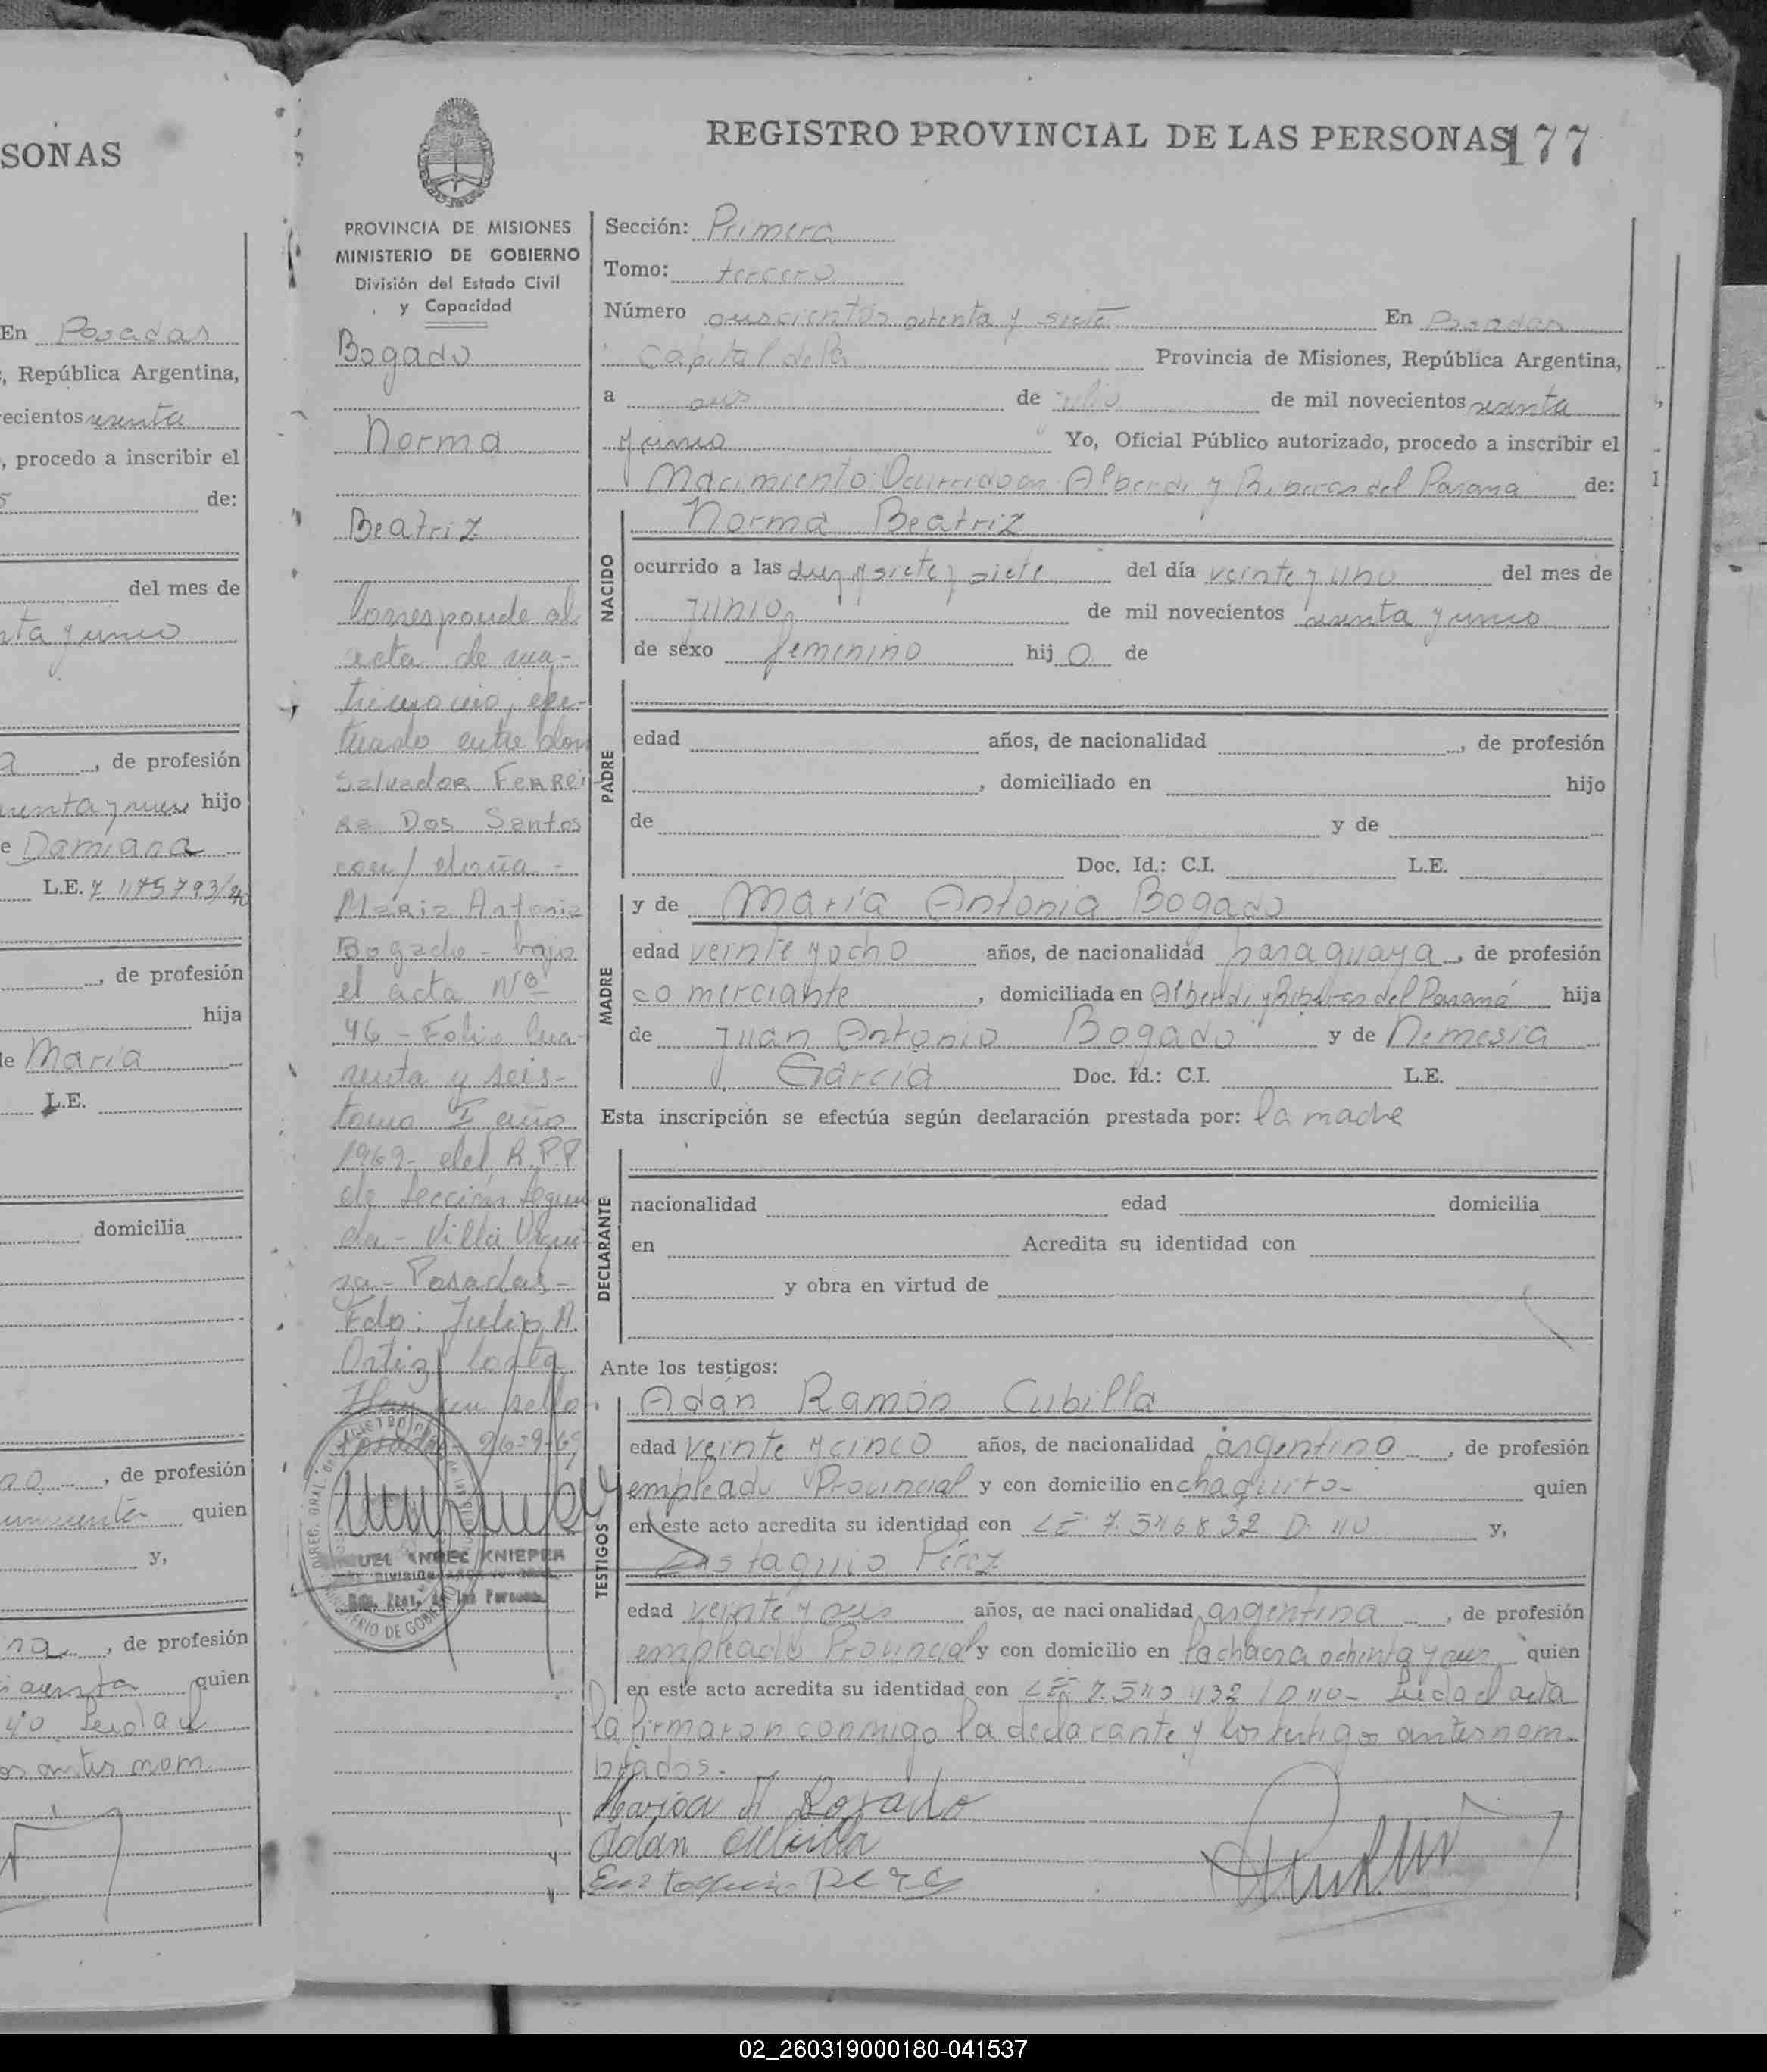 SONAS
En Posadas
, República Argentina,
ecientos sesenta
, procedo a inscribir el
de:
del mes de
ta y cinco
, de profesión
hijo
e Damiana
L.E. 7 1175793/40
, de profesión
hija
de María
L.E.
domicilia
no, de profesión
quien
y,
na, de profesión
quien
os antes nom.
REGISTRO PROVINCIAL DE LAS PERSONAS 177
PROVINCIA DE MISIONES
MINISTERIO DE GOBIERNO
División del Estado Civil
y Capacidad
Bogado
Norma
Beatriz
Corresponde al
acta de ma-
trimonio, efec-
tuado entre don
Salvador Ferrei
ra Dos Santos
con/ doña -
María Antonia
Bogado - bajo
el acta Nº
46 - Folio Cua-
renta y seis-
tomo I año
1969- del R.P.P.
de Sección Segun
da - Villa Urqui-
za - Posadas -
Fdo: Julio A.
Ortiz
Hay un sello
Posadas 26-9-69
MIGUEL ANGEL KNIEPER
Sección: Primera
Tomo: tercero
Número doscientos setenta y siete En Posadas
Capital de la Provincia de Misiones, República Argentina,
a dos de julio de mil novecientos sesenta
y cinco Yo, Oficial Público autorizado, procedo a inscribir el
Nacimiento Ocurrido en Alberdi y Riberas del Paraná de:
NACIDO
Norma Beatriz
ocurrido a las diez y siete y siete del día veinte y uno del mes de
junio de mil novecientos sesenta y cinco
de sexo femenino hij o de
PADRE
edad años, de nacionalidad , de profesión
, domiciliado en hijo
de y de
Doc. Id.: C.I. L.E.
MADRE
y de María Antonia Bogado
edad veinte y ocho años, de nacionalidad paraguaya, de profesión
comerciante, domiciliada en Alberdi y Riberas del Paraná hija
de Juan Antonio Bogado y de Nemesia
García Doc. Id.: C.I. L.E.
Esta inscripción se efectúa según declaración prestada por: la madre
DECLARANTE
nacionalidad edad domicilia
en Acredita su identidad con
y obra en virtud de
Ante los testigos:
TESTIGOS
Adán Ramón Cubilla
edad veinte y cinco años, de nacionalidad argentino, de profesión
empleado Provincial y con domicilio en chaquito- quien
en este acto acredita su identidad con LE 7.546832 D. 40 y,
Eustaquio Pérez
edad veinte y dos años, de nacionalidad argentina, de profesión
empleado Provincial y con domicilio en la chacra ochenta y dos quien
en este acto acredita su identidad con LE 7.540 432 / D 40- Leída el acta
la firmaron conmigo la declarante y los testigos antes nom-
brados.-
Maria A Bogado
Adan Cubilla
Eustaquio Perez
02_260319000180-041537